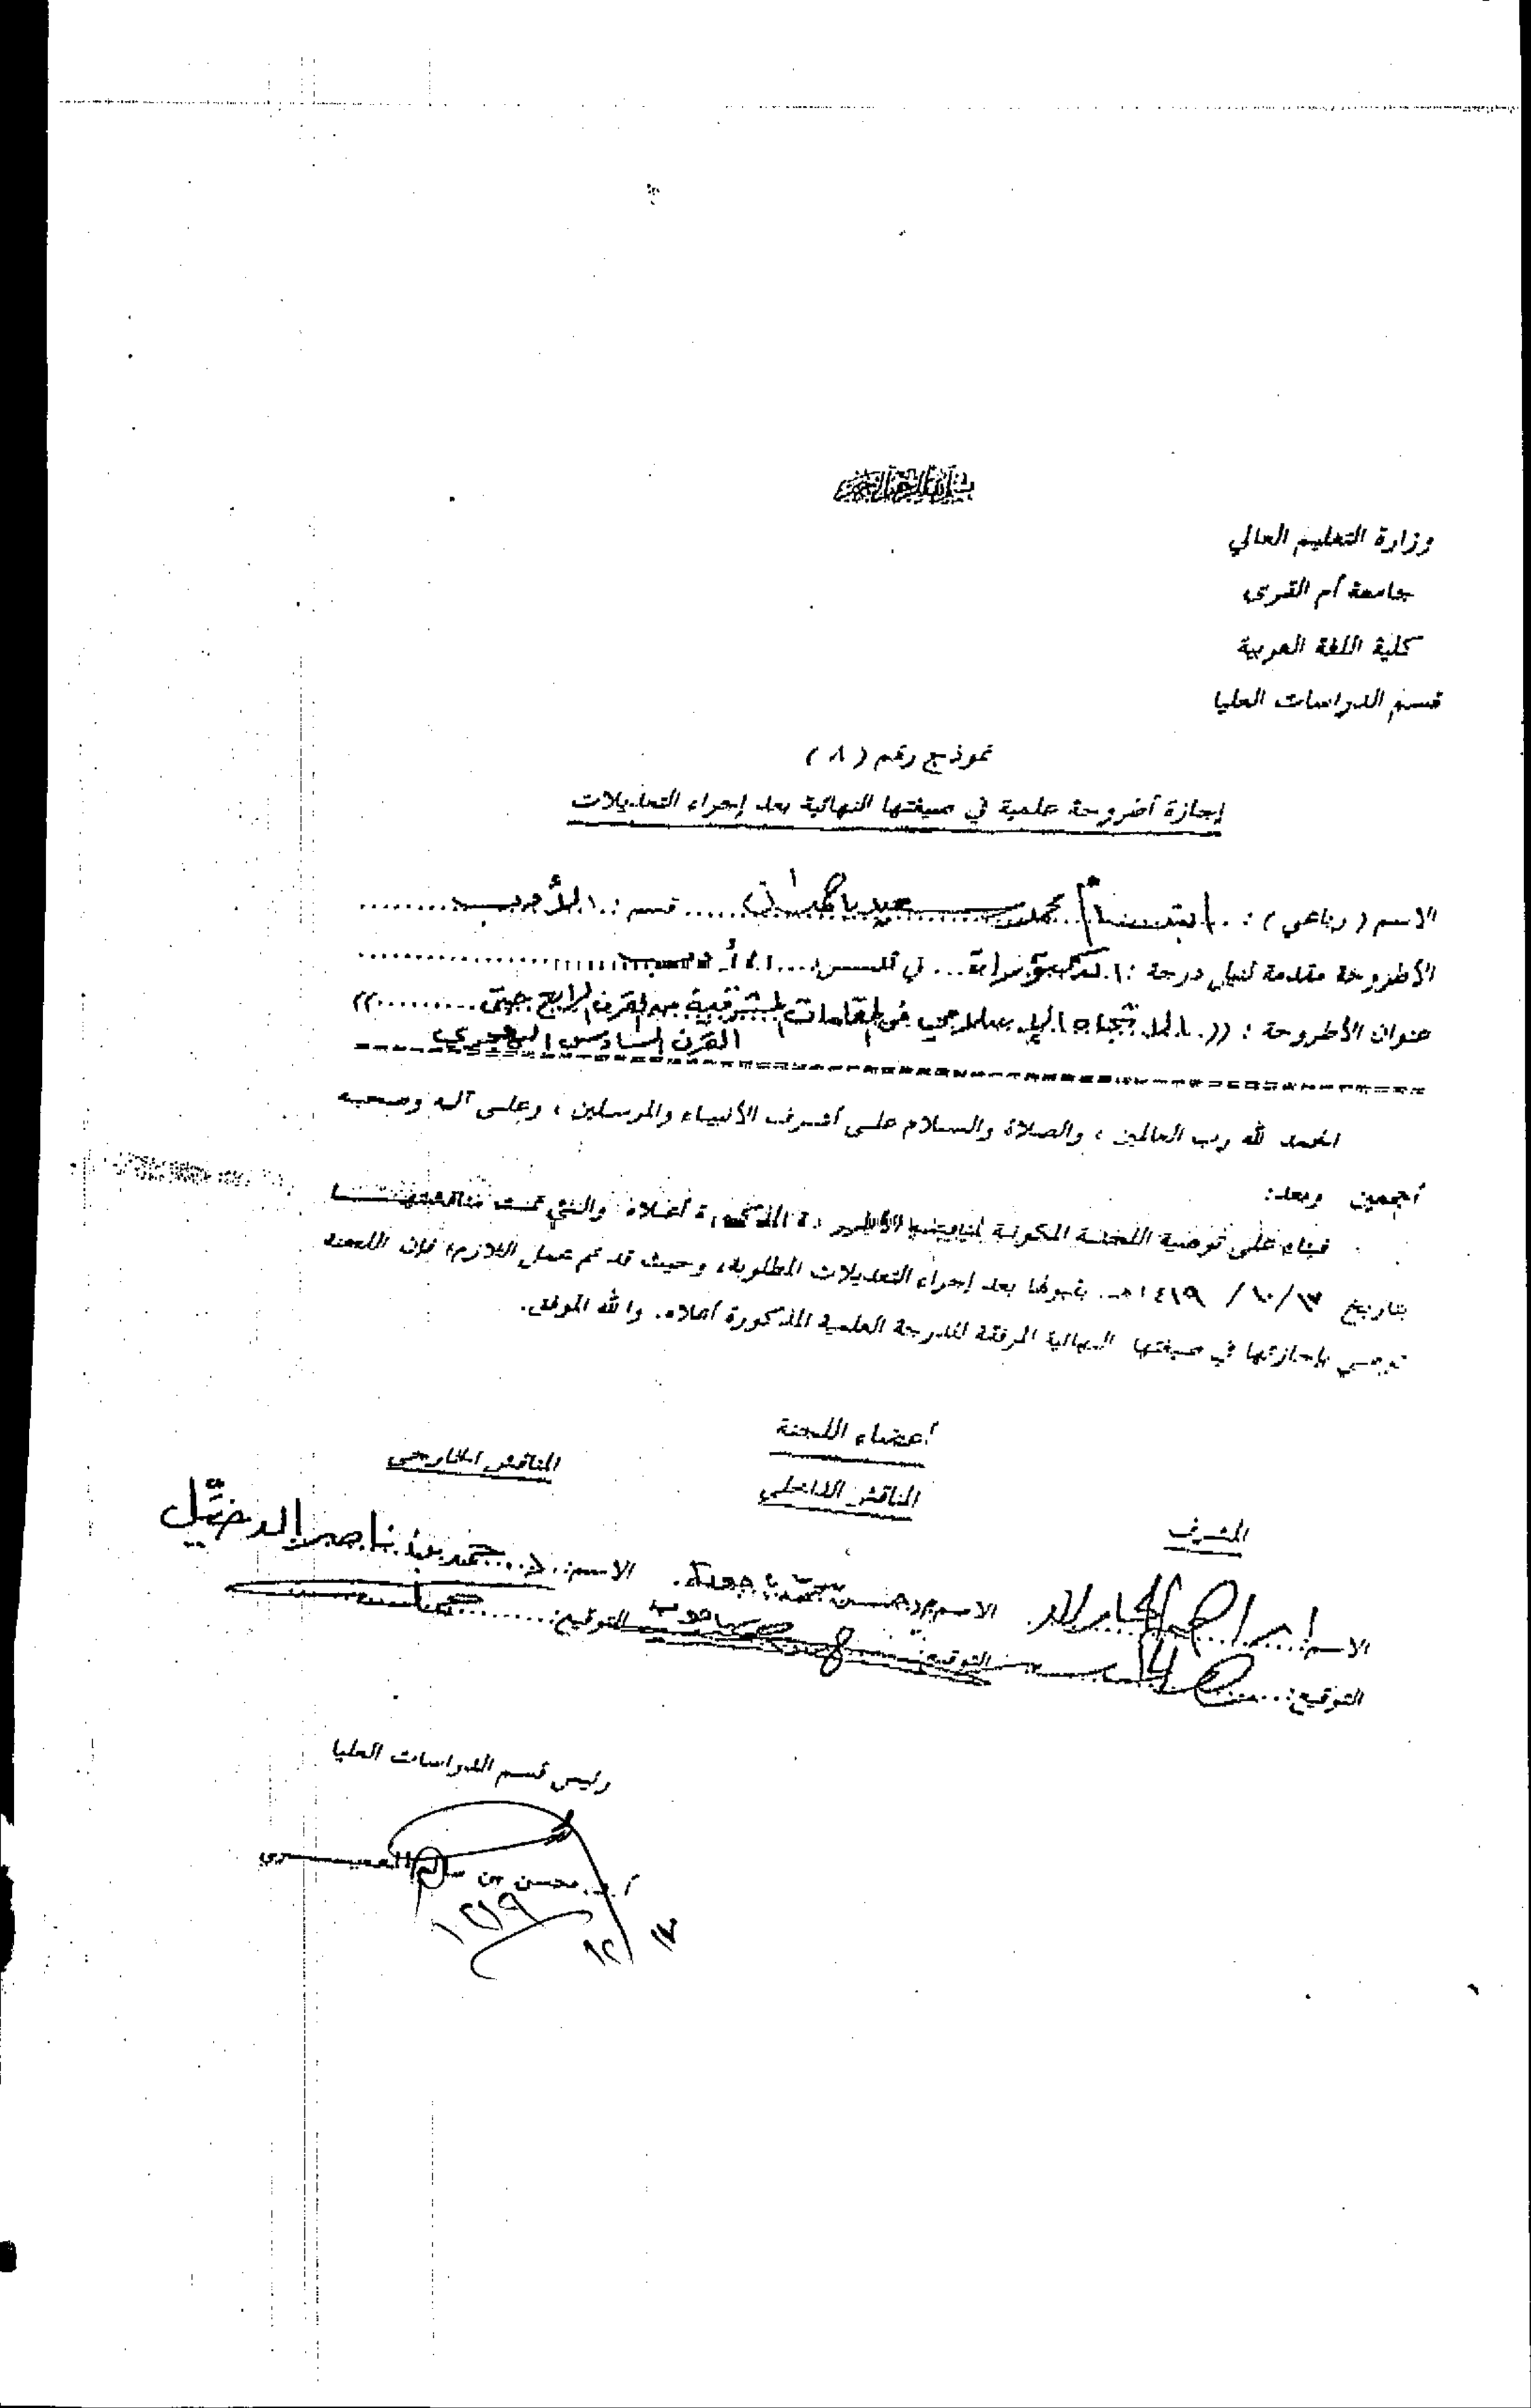 بسم الله الرحمن الرحيم
وزارة التعليم العالي
جامعة أم القرى
كلية اللغة العربية
قسم الدراسات العليا
نموذج رقم (٨)
إجازة أطروحة علمية في صيغتها النهائية بعد إجراء التعديلات
الاسم (رباعي) : محمد سعيد قسم : الأدب
الأطروحة مقدمة لنيل درجة : الدكتوراة في تخصص : الأدب
عنوان الأطروحة : (( الاتجاه الإسلامي في المقامات المشرقية من القرن الرابع حتى ))
القرن السادس الهجري
الحمد لله رب العالمين ، والصلاة والسلام على أشرف الأنبياء والمرسلين ، وعلى آله وصحبه
أجمعين وبعد:
فبناء على توصية اللجنة المكونة لمناقشة الأطروحة المذكورة أعلاه والتي تمت مناقشتها
بتاريخ /١٠/ ١٤١٩هـ بقبولها بعد إجراء التعديلات المطلوبة، وحيث قد تم عمل اللازم، فإن اللجنة
توصي بإجازتها في صيغتها النهائية المرفقة للدرجة العلمية المذكورة أعلاه. والله الموفق.
أعضاء اللجنة
المشرف
المناقش الداخلي
المناقش الخارجي
الاسم: الاسم: د. حسن محمد باجودة الاسم: د. حمد بن ناصر الدخيّل
التوقيع: التوقيع: التوقيع:
رئيس قسم الدراسات العليا
أ.د. محسن بن سالم العميري